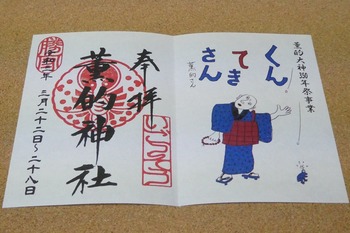 薫的大神350年祭事業
くん
てき
さん
薫的さん
奉拝
薫的神社
三月二十二日～二十八日